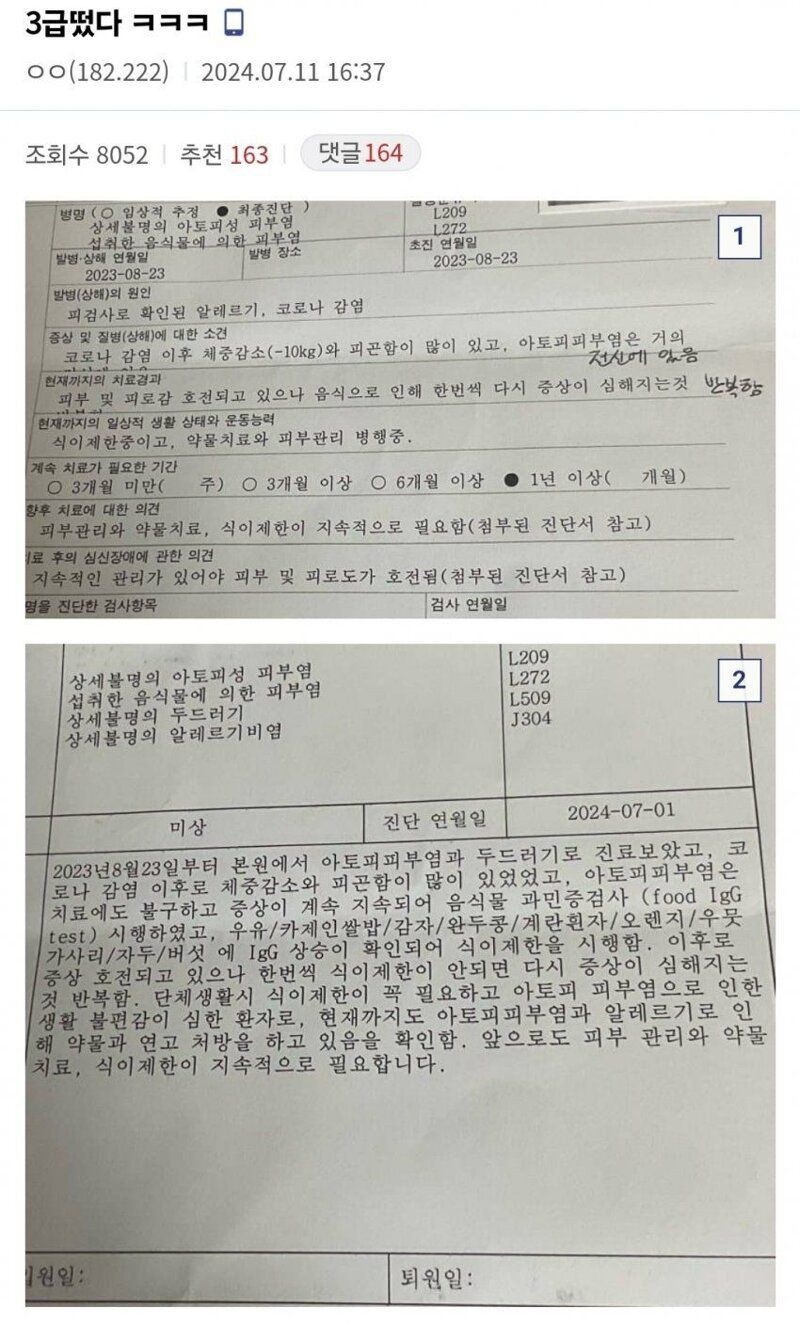 3급떴다 ㅋㅋㅋ
ㅇㅇ(182.222) 2024.07.11 16:37
조회수 8052 추천 163 댓글 164
1
병명 (○ 임상적 추정 ● 최종진단 )
상세불명의 아토피성 피부염
섭취한 음식물에 의한 피부염
L209
L272
발병·상해 연월일
2023-08-23
발병 장소
초진 연월일
2023-08-23
발병(상해)의 원인
피검사로 확인된 알레르기, 코로나 감염
증상 및 질병(상해)에 대한 소견
코로나 감염 이후 체중감소(-10kg)와 피곤함이 많이 있고, 아토피피부염은 거의
전신에 있음
현재까지의 치료경과
피부 및 피로감 호전되고 있으나 음식으로 인해 한번씩 다시 증상이 심해지는것 반복함
현재까지의 일상적 생활 상태와 운동능력
식이제한중이고, 약물치료와 피부관리 병행중.
계속 치료가 필요한 기간
○ 3개월 미만( 주) ○ 3개월 이상 ○ 6개월 이상 ● 1년 이상( 개월)
향후 치료에 대한 의견
피부관리와 약물치료, 식이제한이 지속적으로 필요함(첨부된 진단서 참고)
료 후의 심신장애에 관한 의견
지속적인 관리가 있어야 피부 및 피로도가 호전됨(첨부된 진단서 참고)
명을 진단한 검사항목
검사 연월일
2
상세불명의 아토피성 피부염 L209
섭취한 음식물에 의한 피부염 L272
상세불명의 두드러기 L509
상세불명의 알레르기비염 J304
미상 진단 연월일 2024-07-01
2023년8월23일부터 본원에서 아토피피부염과 두드러기로 진료보았고, 코
로나 감염 이후로 체중감소와 피곤함이 많이 있었었고, 아토피피부염은
치료에도 불구하고 증상이 계속 지속되어 음식물 과민증검사 (food IgG
test) 시행하였고, 우유/카제인쌀밥/감자/완두콩/계란흰자/오렌지/우뭇
가사리/자두/버섯 에 IgG 상승이 확인되어 식이제한을 시행함. 이후로
증상 호전되고 있으나 한번씩 식이제한이 안되면 다시 증상이 심해지는
것 반복함. 단체생활시 식이제한이 꼭 필요하고 아토피 피부염으로 인한
생활 불편감이 심한 환자로, 현재까지도 아토피피부염과 알레르기로 인
해 약물과 연고 처방을 하고 있음을 확인함. 앞으로도 피부 관리와 약물
치료, 식이제한이 지속적으로 필요합니다.
입원일:
퇴원일: